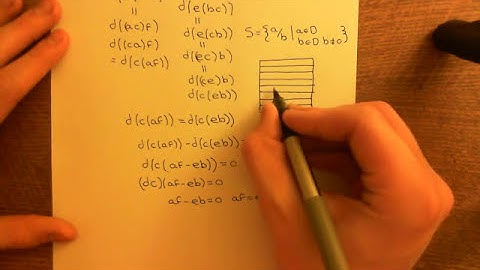 d((ac)f)
d((ca)f)
=d(c(af))
d(e(bc))
=
d(e(cb))
=
d((ec)b)
=
d((ce)b)
d(c(eb))
S={a/b | a∈D b∈D b≠0}
d(c(af))=d(c(eb))
d(c(af))-d(c(eb))=
d(c(af-eb))=0
(dc)(af-eb)=0
af-eb=0 af=